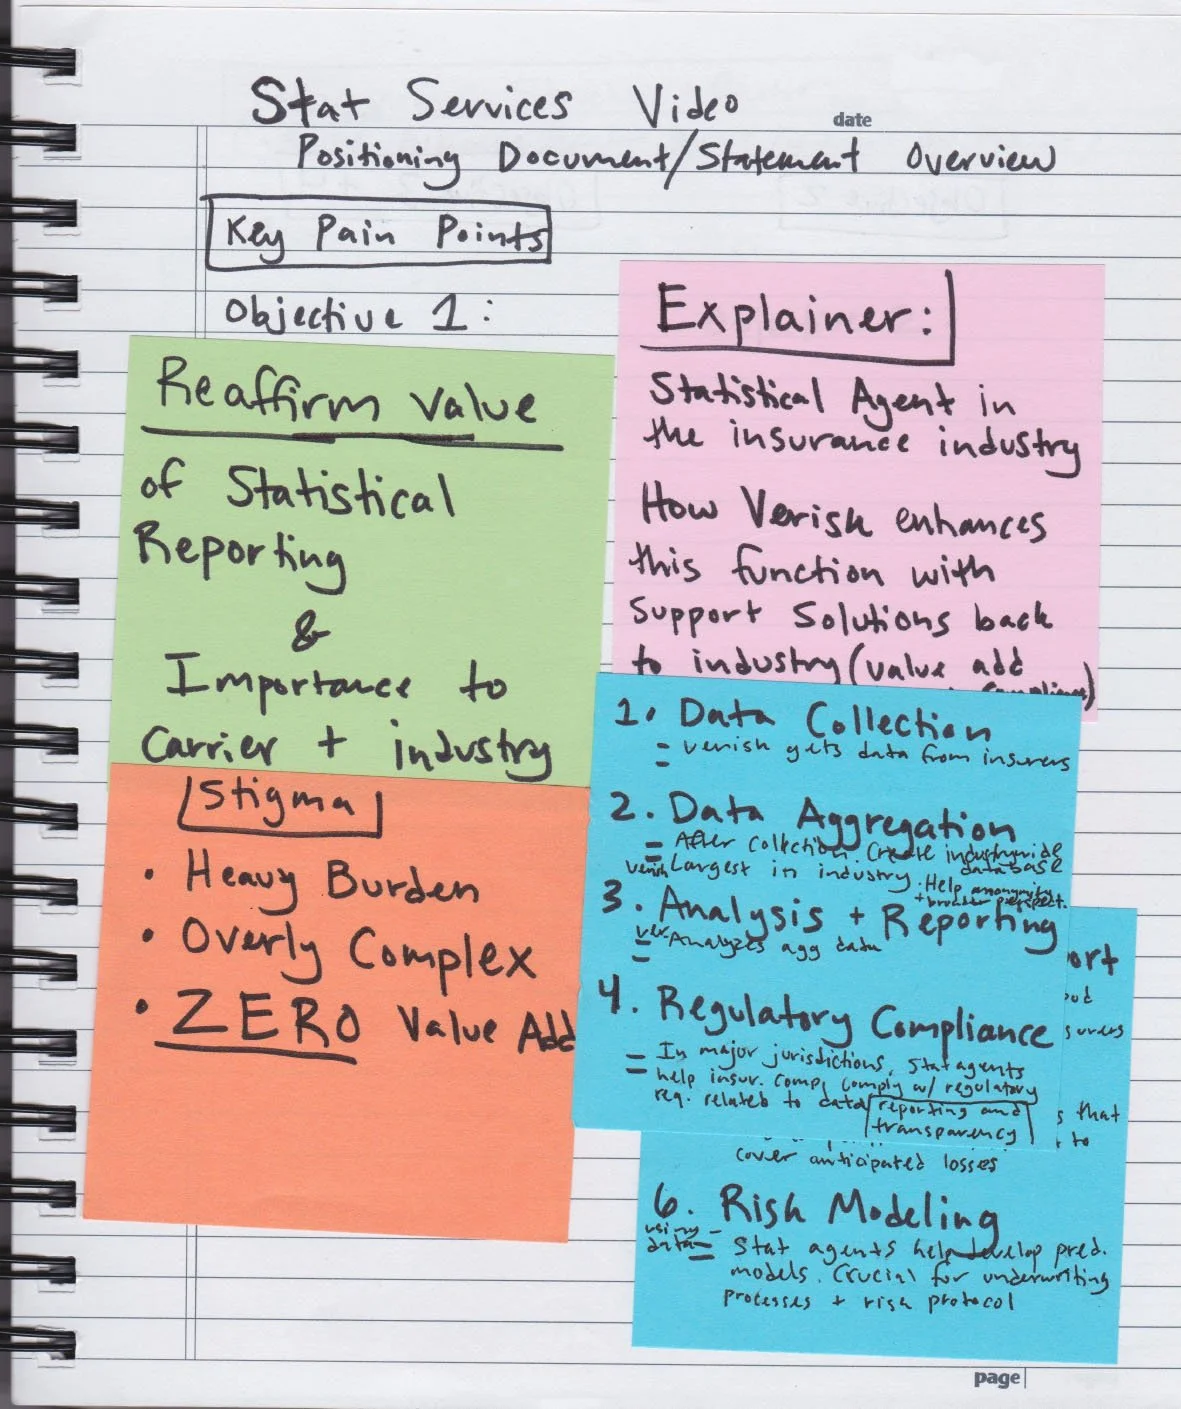 Stat Services Video
date
Positioning Document/Statement Overview
Key Pain Points
Objective 1:
Reaffirm value
of Statistical
Reporting
&
Importance to
Carrier + industry
Stigma
• Heavy Burden
• Overly Complex
• ZERO Value Add
Explainer:
Statistical Agent in
the insurance industry
How Verisk enhances
this function with
Support Solutions back
to industry (value add
compliance)
1. Data Collection
= verisk gets data from insurers
2. Data Aggregation
= After collection. Create industrywide
database
verisk Largest in industry. Help anonymity
+ broader perspect.
3. Analysis + Reporting
ver. Analyzes agg data
4. Regulatory Compliance
= In major jurisdictions, stat agents
help insur. comp. comply w/ regulatory
req. related to data reporting and
transparency
ort
surers
s that
to
cover anticipated losses
6. Risk Modeling
using data = Stat agents help develop pred.
models. Crucial for underwriting
processes + risk protocol
page